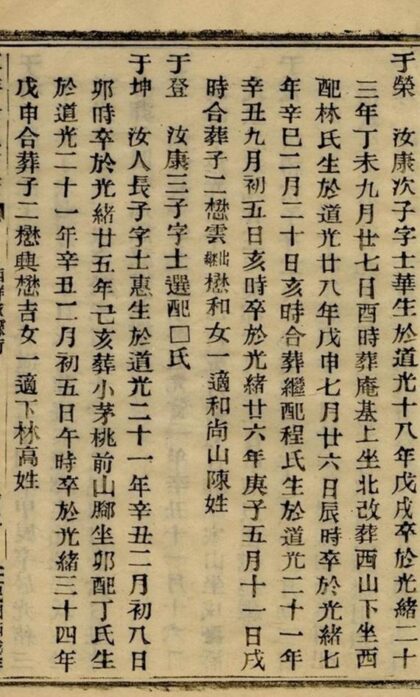 于榮 汝康次子字士華生於道光十八年戊戌卒於光緒二十
三年丁未九月廿七日酉時葬庵基上坐北改葬西山下坐西
配林氏生於道光廿八年戊申七月廿六日辰時卒於光緒七
年辛巳二月二十日亥時合葬繼配程氏生於道光二十一年
辛丑九月初五日亥時卒於光緒廿六年庚子五月十一日戌
時合葬子二懋雲出繼懋和女一適和尚山陳姓
于登 汝康三子字士選配□氏
于坤 汝人長子字士惠生於道光二十一年辛丑二月初八日
卯時卒於光緒廿五年己亥葬小茅桃前山腳坐卯配丁氏生
於道光二十一年辛丑二月初五日午時卒於光緒三十四年
戊申合葬子二懋興懋吉女一適下林高姓